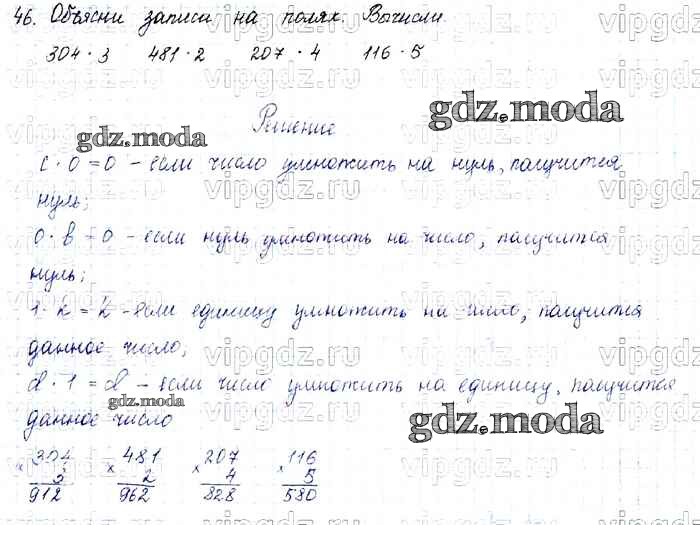 46. Объясни записи на полях. Вычисли
304 · 3 481 · 2 207 · 4 116 · 5
Решение
gdz.moda
gdz.moda
c · 0 = 0 – если число умножить на нуль, получится
нуль;
0 · в = 0 – если нуль умножить на число, получится
нуль;
1 · 2 = 2 – если единицу умножить на число, получится
данное число;
d · 1 = d – если число умножить на единицу, получится
gdz.moda
данное число
gdz.moda
× 304 × 481 × 207 × 116
3 2 4 5
912 962 828 580
vipgdz.ru